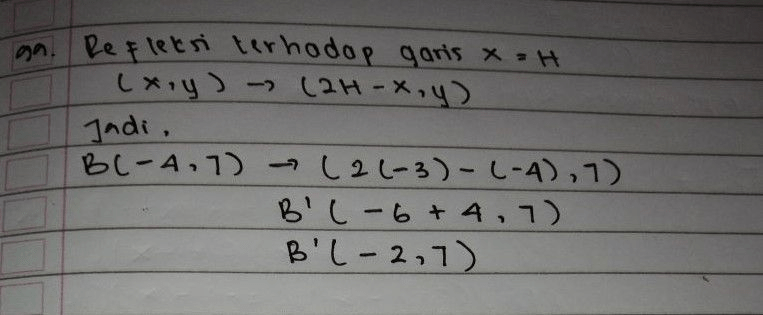 99. Refleksi terhadap garis x = H
(x,y) → (2H-x,y)
Jadi,
B(-4,7) → (2(-3)-(-4),7)
B'(-6+4,7)
B'(-2,7)